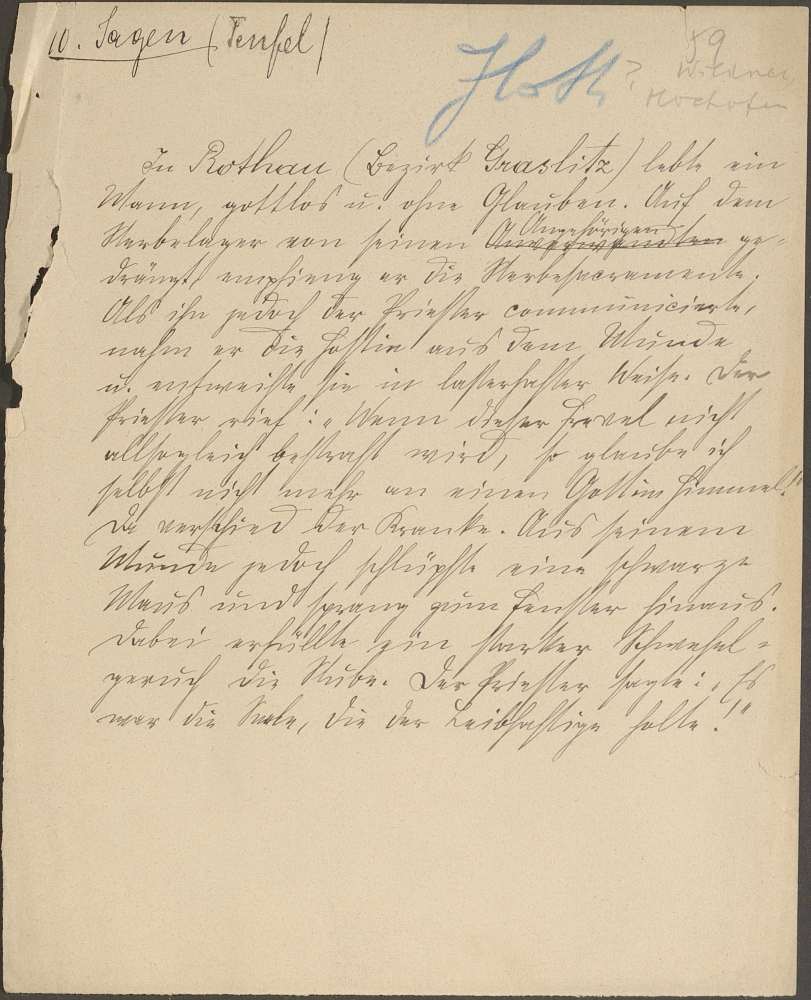 10. Sagen (Teufel)
59
Wildner,
Hochofen
In Rothau (Bezirk Graslitz) lebte ein
Mann, gottlos u. ohne Glauben. Auf dem
Sterbelager von seinen Angehörigen ge-
drängt, empfieng er die Sterbesacramente.
Als ihn jedoch der Priester communicierte,
nahm er die Hostie aus dem Munde
u. entweihte sie in lasterhafter Weise. Der
Priester rief: „Wenn dieser Frevel nicht
allsogleich bestraft wird, so glaube ich
selbst nicht mehr an einen Gott im Himmel!"
Da verschied der Kranke. Aus seinem
Munde jedoch schlüpfte eine schwarze
Maus und sprang zum Fenster hinaus.
Dabei erfüllte ein starker Schwefel-
geruch die Stube. Der Priester sagte: „Es
war die Seele, die der Leibhaftige holte!"